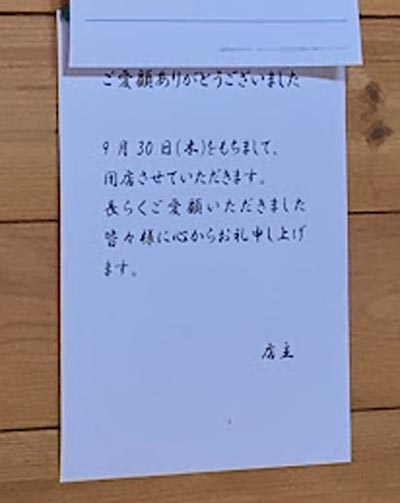 ご愛顧ありがとうございました
9月30日(木)をもちまして、
閉店させていただきます。
長らくご愛顧いただきました
皆々様に心からお礼申し上げ
ます。
店主